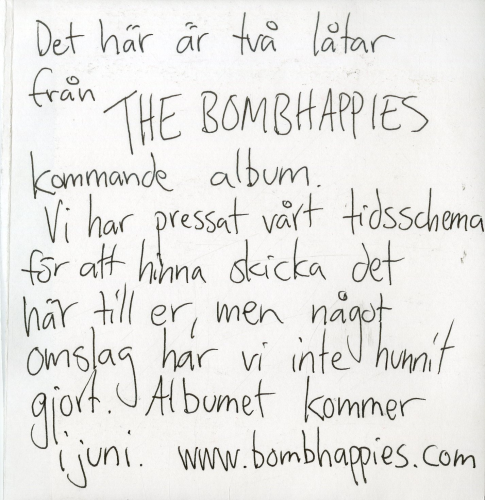 Det här är två låtar
från THE BOMBHAPPIES
kommande album.
Vi har pressat vårt tidsschema
för att hinna skicka det
här till er, men något
omslag har vi inte hunnit
gjort. Albumet kommer
i juni. www.bombhappies.com